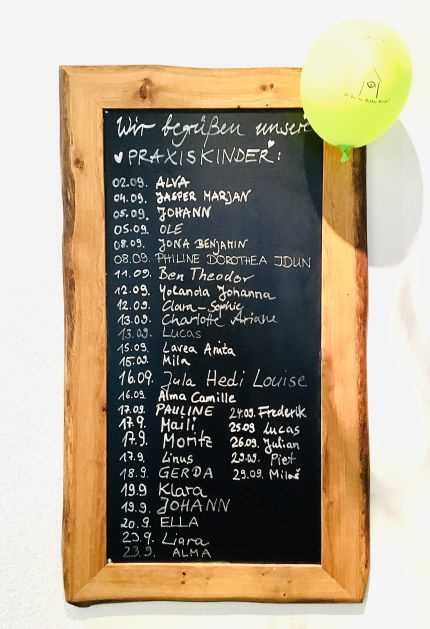 Wir begrüßen unsere
PRAXISKINDER:
02.09. ALVA
04.09. JASPER MARJAN
05.09. JOHANN
05.09. OLE
08.09. JONA BENJAMIN
08.09. PHILINE DOROTHEA IDUN
11.09. Ben Theodor
12.09. Yolanda Johanna
12.09. Clara-Sophie
13.09. Charlotte Ariane
13.09. Lucas
15.09. Lavea Anita
15.09. Mila
16.09. Jula Hedi Louise
16.09. Alma Camille
17.09. PAULINE
17.9. Maili
17.9. Moritz
17.9. Linus
18.9. GERDA
19.9 Klara
19.9. JOHANN
20.9. ELLA
23.9. Liara
23.9. ALMA
24.09. Frederik
25.09 Lucas
26.09. Julian
29.09. Piet
29.09. Miloš